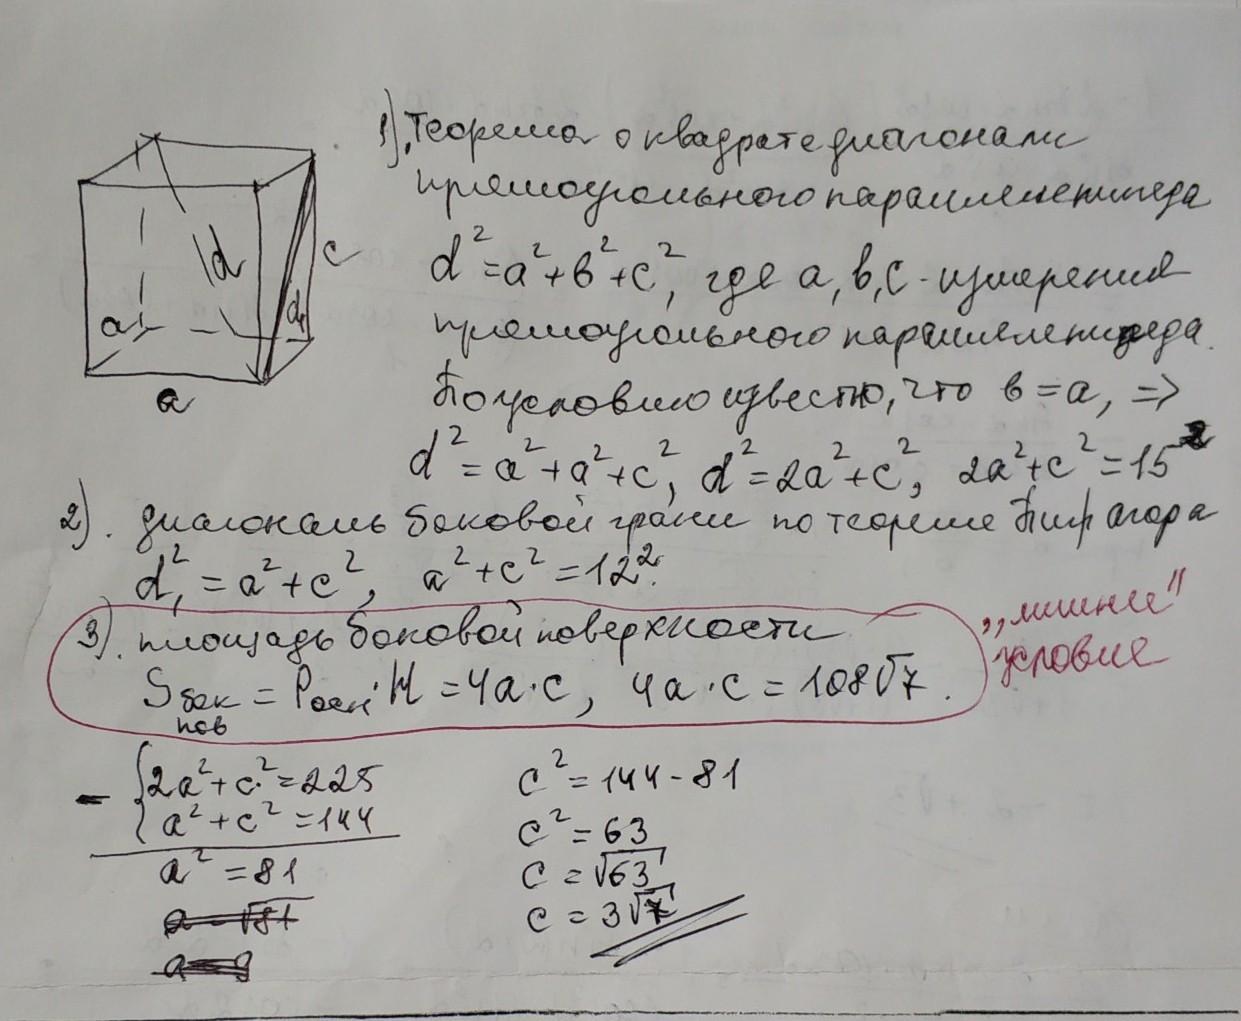 1). Теорема о квадрате диагонали
прямоугольного параллелепипеда
d² = a² + в² + c², где a, в, c - измерения
прямоугольного параллелепипеда.
По условию известно, что в = a, =>
d² = a² + a² + c², d² = 2a² + c², 2a² + c² = 15²
d
c
d₁
a
a
2). диагональ боковой грани по теореме Пифагора
d₁² = a² + c², a² + c² = 12².
3). площадь боковой поверхности
Sбок пов = Pосн · H = 4a·c, 4a·c = 108√7.
„лишнее"
условие
- { 2a² + c² = 225
a² + c² = 144
a² = 81
a = √81
a = 9
c² = 144 - 81
c² = 63
c = √63
c = 3√7